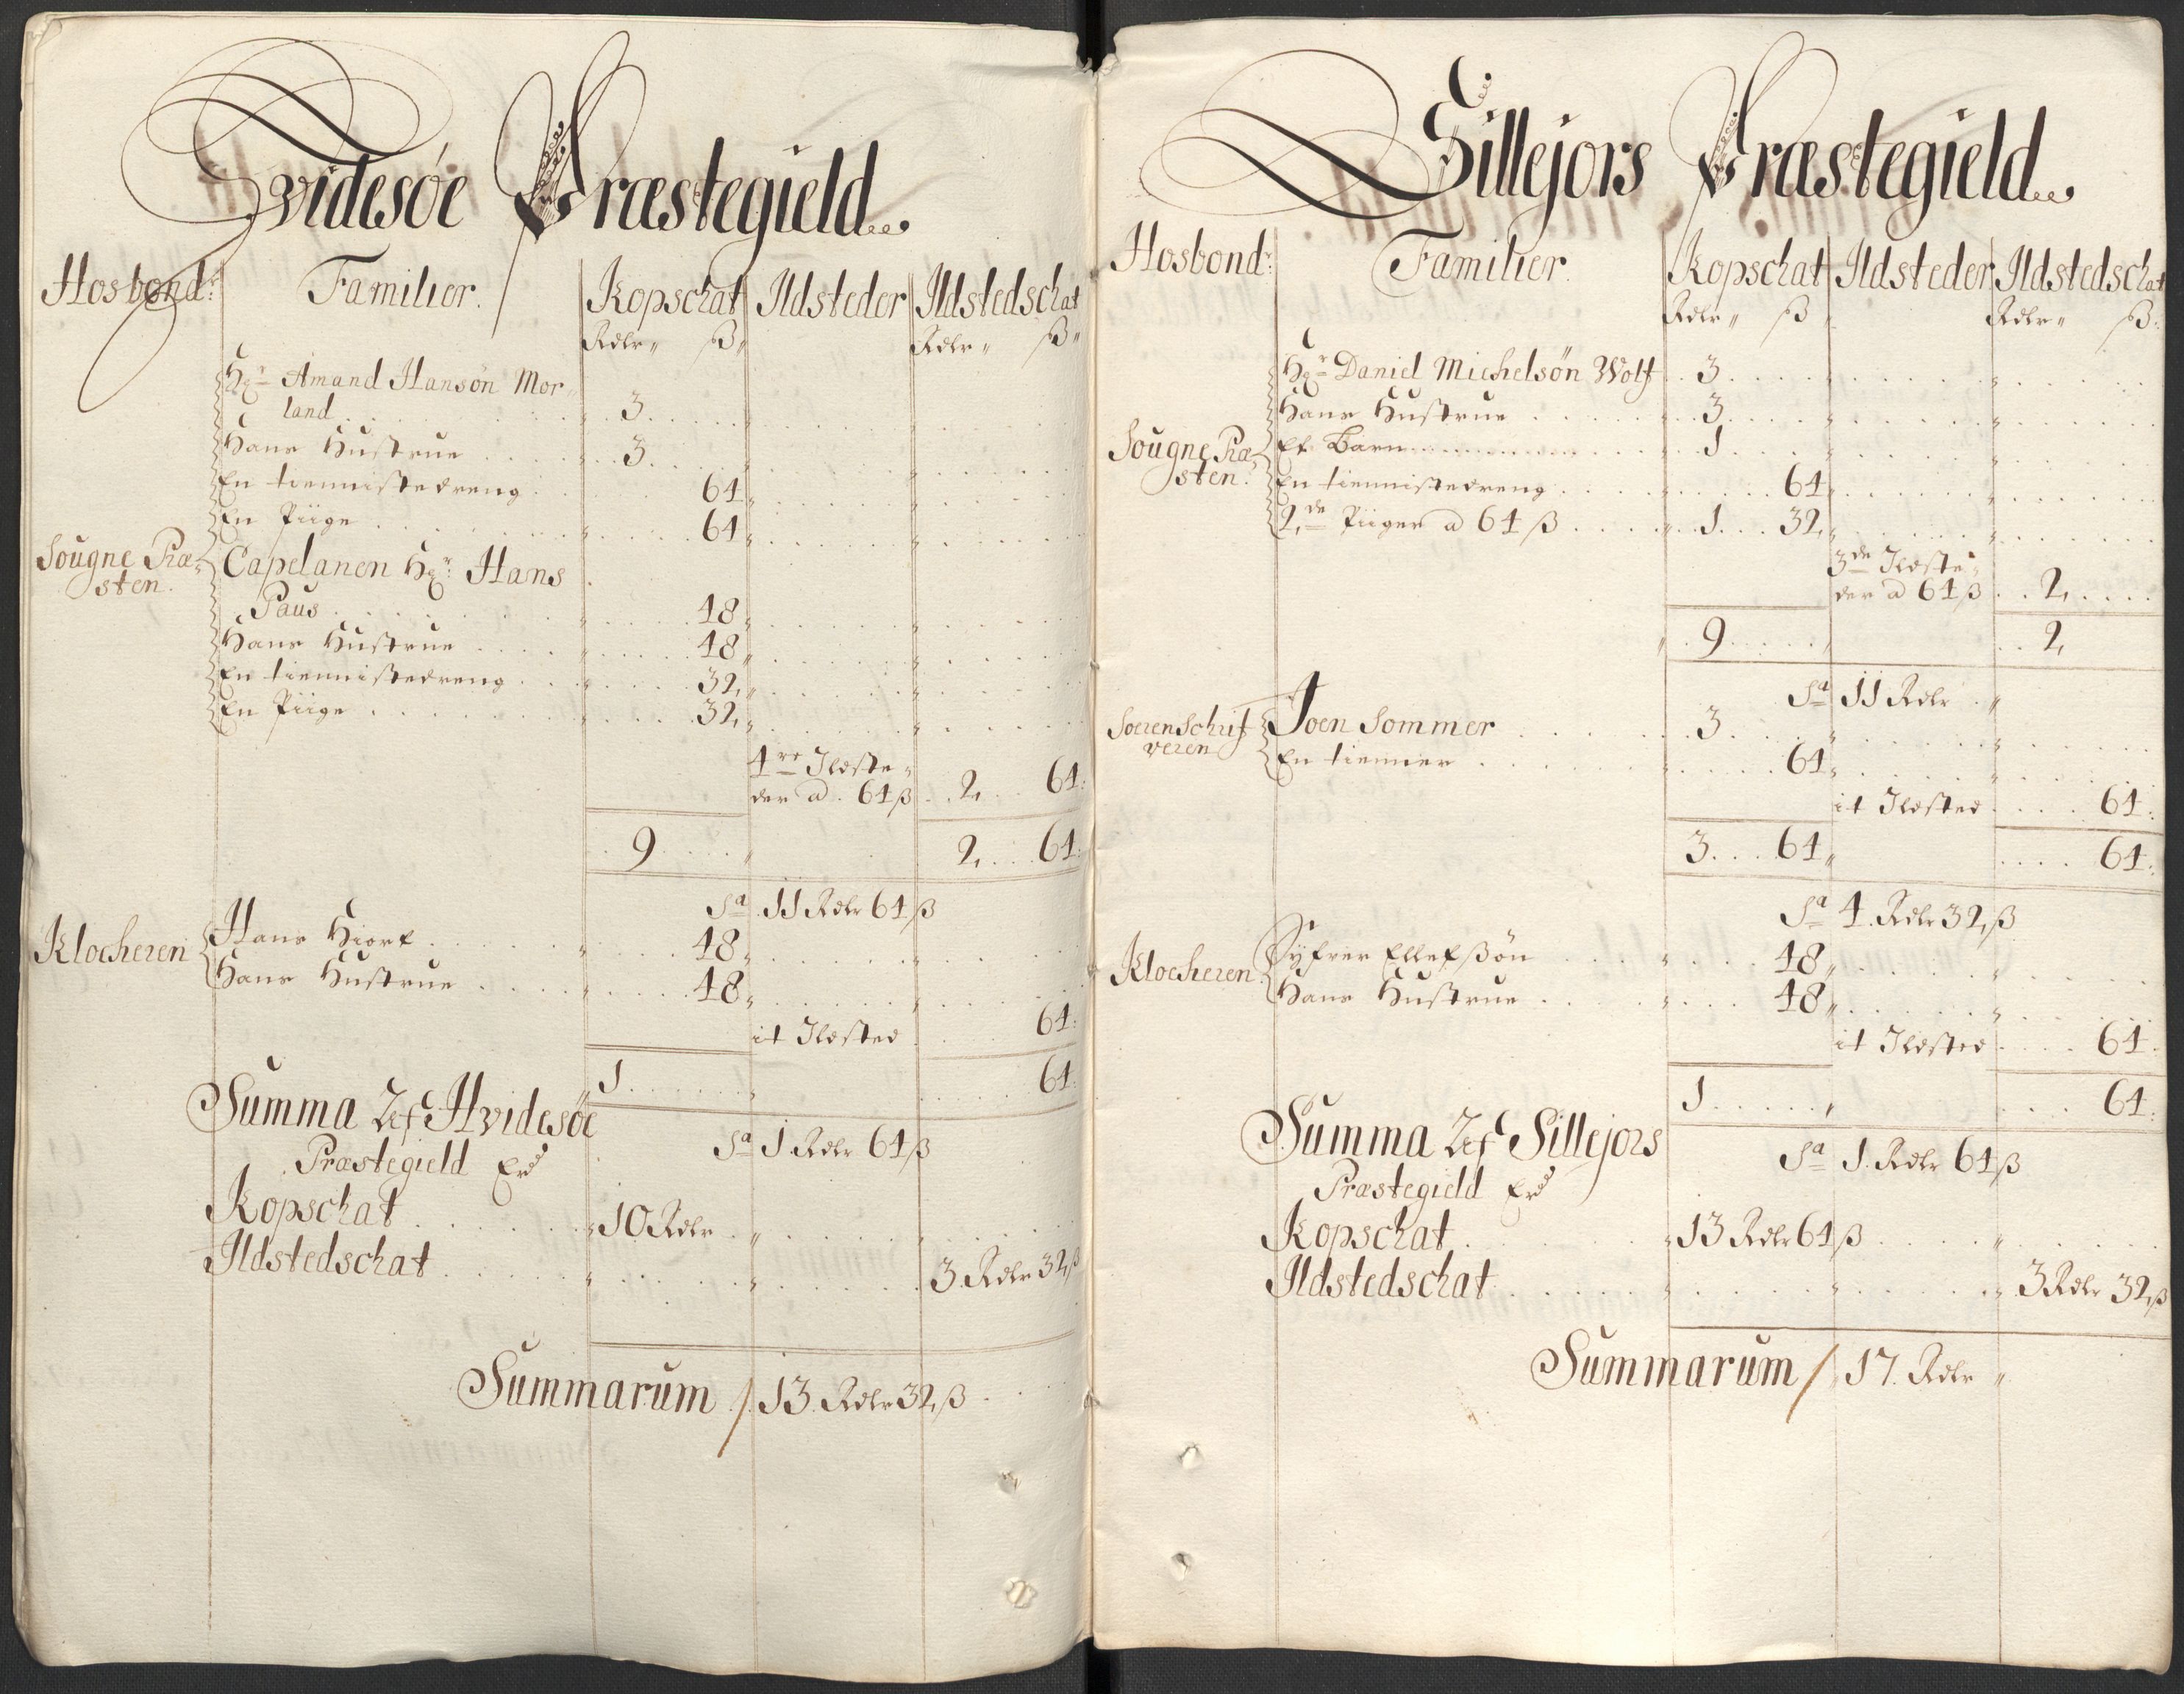 Hvidesøe Præstegield
Hosbond: Familier. Kopschat Ildsteder Ildstedschat
Rdlr ß Rdlr ß
Hr Amand Hansøn Mor
land 3
Hans Hustrue 3
En tiennistedreng 64
En Piige 64
Sougne Præ
sten.
Capelanen Hr: Hans
Paus 48
Hans Hustrue 48
En tiennistedreng 32
En Piige 32
4re Ildste
der a 64 ß 2 64
9 2 64
Sa 11 Rdlr 64 ß
Klocheren Hans Hiort 48
Hans Hustrue 48
it Ildsted 64
1 64
Summa Af Hvidesøe
Præstegield Er
Sa 1 Rdlr 64 ß
Kopschat 10 Rdlr
Ildstedschat 3 Rdlr 32 ß
Summarum / 13 Rdlr 32 ß
Sillejors Præstegield
Hosbond: Familier. Kopschat Ildsteder Ildstedschat
Rdlr ß Rdlr ß
Hr Daniel Michelsøn Wolf 3
Hans Hustrue 3
Sougne Præ
sten.
Et Barn 1
En tiennistedreng 64
2de Piiger a 64 ß 1 32
3de Ildste
der a 64 ß 2
9 2
Sa 11 Rdlr
Sorenschrif
veren
Joen Sommer 3
En tienner 64
it Ildsted 64
3 64 64
Sa 4 Rdlr 32 ß
Klocheren Syfver Ellefßøn 48
Hans Hustrue 48
it Ildsted 64
1 64
Summa Af Sillejors
Præstegield Er
Sa 1 Rdlr 64 ß
Kopschat 13 Rdlr 64 ß
Ildstedschat 3 Rdlr 32 ß
Summarum / 17 Rdlr